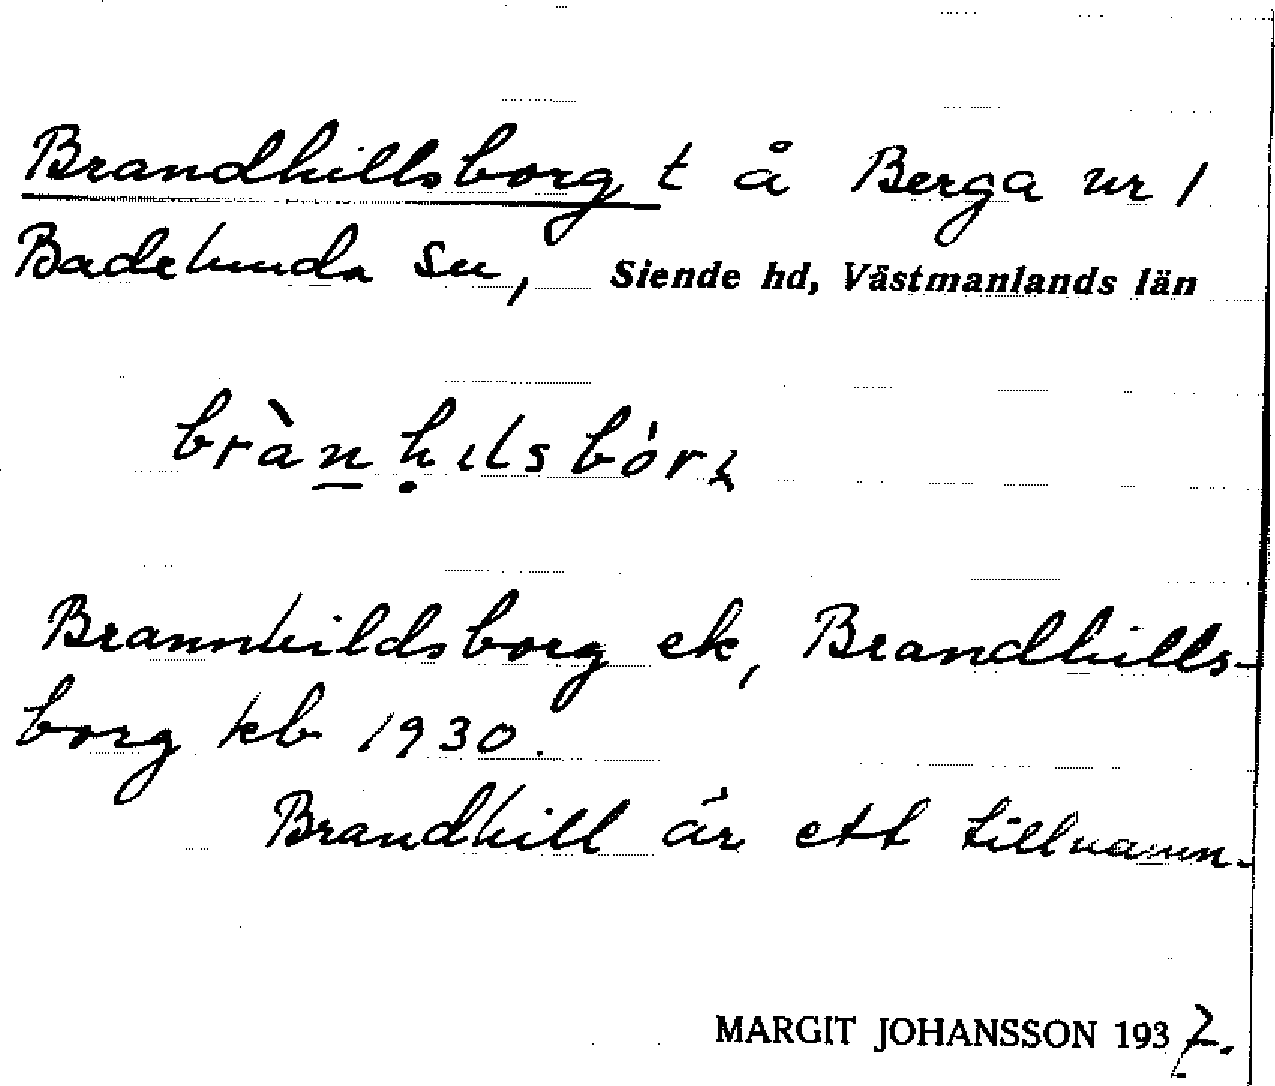 Brandhillsborg t å Berga nr 1
Badelunda sn, Siende hd, Västmanlands län
bràn̲ḥılsbórk
Brannhildsborg ek, Brandhills-
borg kb 1930.
Brandhill är ett tillnamn.
MARGIT JOHANSSON 1937.